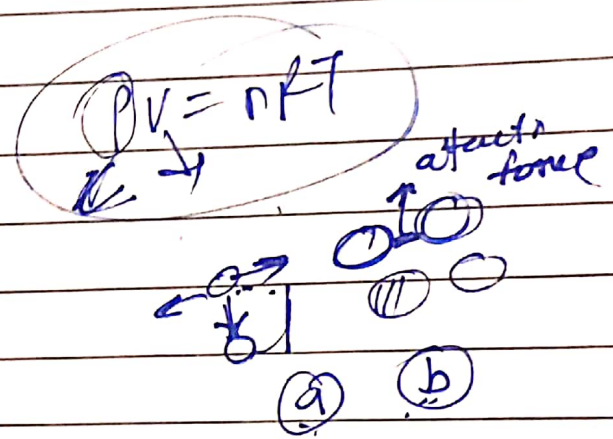 PV = nRT
attractn
force
a
b